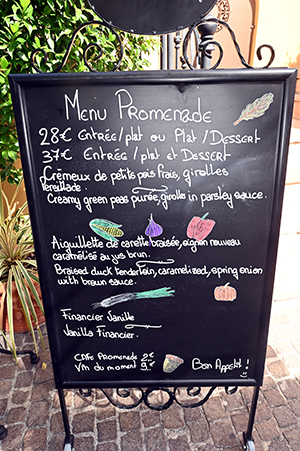 Menu Promenade
28€ Entrée/plat ou Plat/Dessert
37€ Entrée/plat et Dessert
Crémeux de petits pois frais, girolles
Persillade.
Creamy green peas purée, girolls in parsley sauce.
Aiguillette de canette braisée, oignon nouveau
caramélisé au jus brun.
Braised duck tenderloin, caramelized, spring onion
with brown sauce.
Financier Vanille
Vanilla Financier.
Café Promenade 2€
Vin du moment 9€
Bon Appetit!